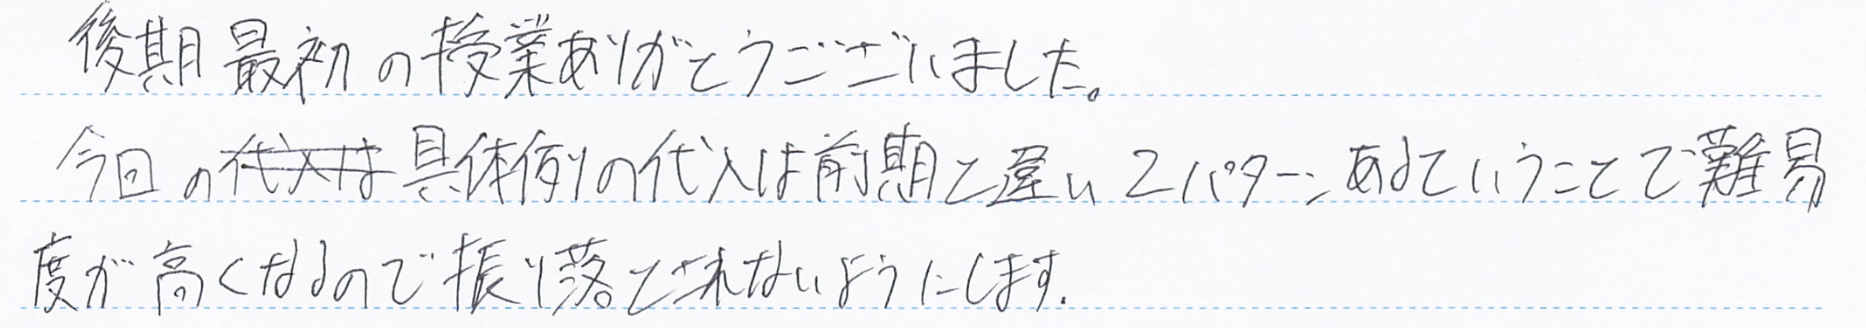 後期最初の授業ありがとうございました。
今回の代入は具体例の代入は前期と違い2パターンあるということで難易
度が高くなるので振り落とされないようにします.